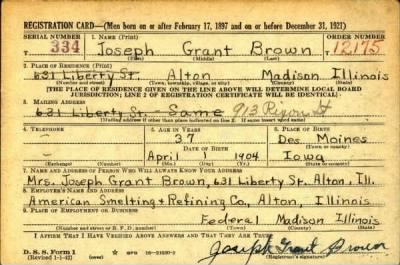 REGISTRATION CARD—(Men born on or after February 17, 1897 and on or before December 31, 1921)
SERIAL NUMBER 1. NAME (Print) ORDER NUMBER
334 Joseph Grant Brown 12,175
(First) (Middle) (Last)
2. PLACE OF RESIDENCE (Print)
631 Liberty St. Alton Madison Illinois
(Number and street) (Town, township, village, or city) (County) (State)
[THE PLACE OF RESIDENCE GIVEN ON THE LINE ABOVE WILL DETERMINE LOCAL BOARD
JURISDICTION; LINE 2 OF REGISTRATION CERTIFICATE WILL BE IDENTICAL]
3. MAILING ADDRESS
631 Liberty St. Same 913 St
[Mailing address if other than place indicated on line 2. If same insert word same]
4. TELEPHONE 5. AGE IN YEARS 6. PLACE OF BIRTH
37 Des Moines
DATE OF BIRTH (Town or county)
April 1904 Iowa
(Exchange) (Number) (Mo.) (Day) (Yr.) (State or country)
7. NAME AND ADDRESS OF PERSON WHO WILL ALWAYS KNOW YOUR ADDRESS
Mrs. Joseph Grant Brown, 631 Liberty St. Alton, Ill.
8. EMPLOYER'S NAME AND ADDRESS
American Smelting & Refining Co., Alton, Illinois
9. PLACE OF EMPLOYMENT OR BUSINESS
Federal Madison Illinois
(Number and street or R. F. D. number) (Town) (County) (State)
I AFFIRM THAT I HAVE VERIFIED ABOVE ANSWERS AND THAT THEY ARE TRUE.
D. S. S. Form 1
(Revised 1-1-42) (over) GPO 16—21630-2 Joseph Grant Brown
(Registrant's signature)